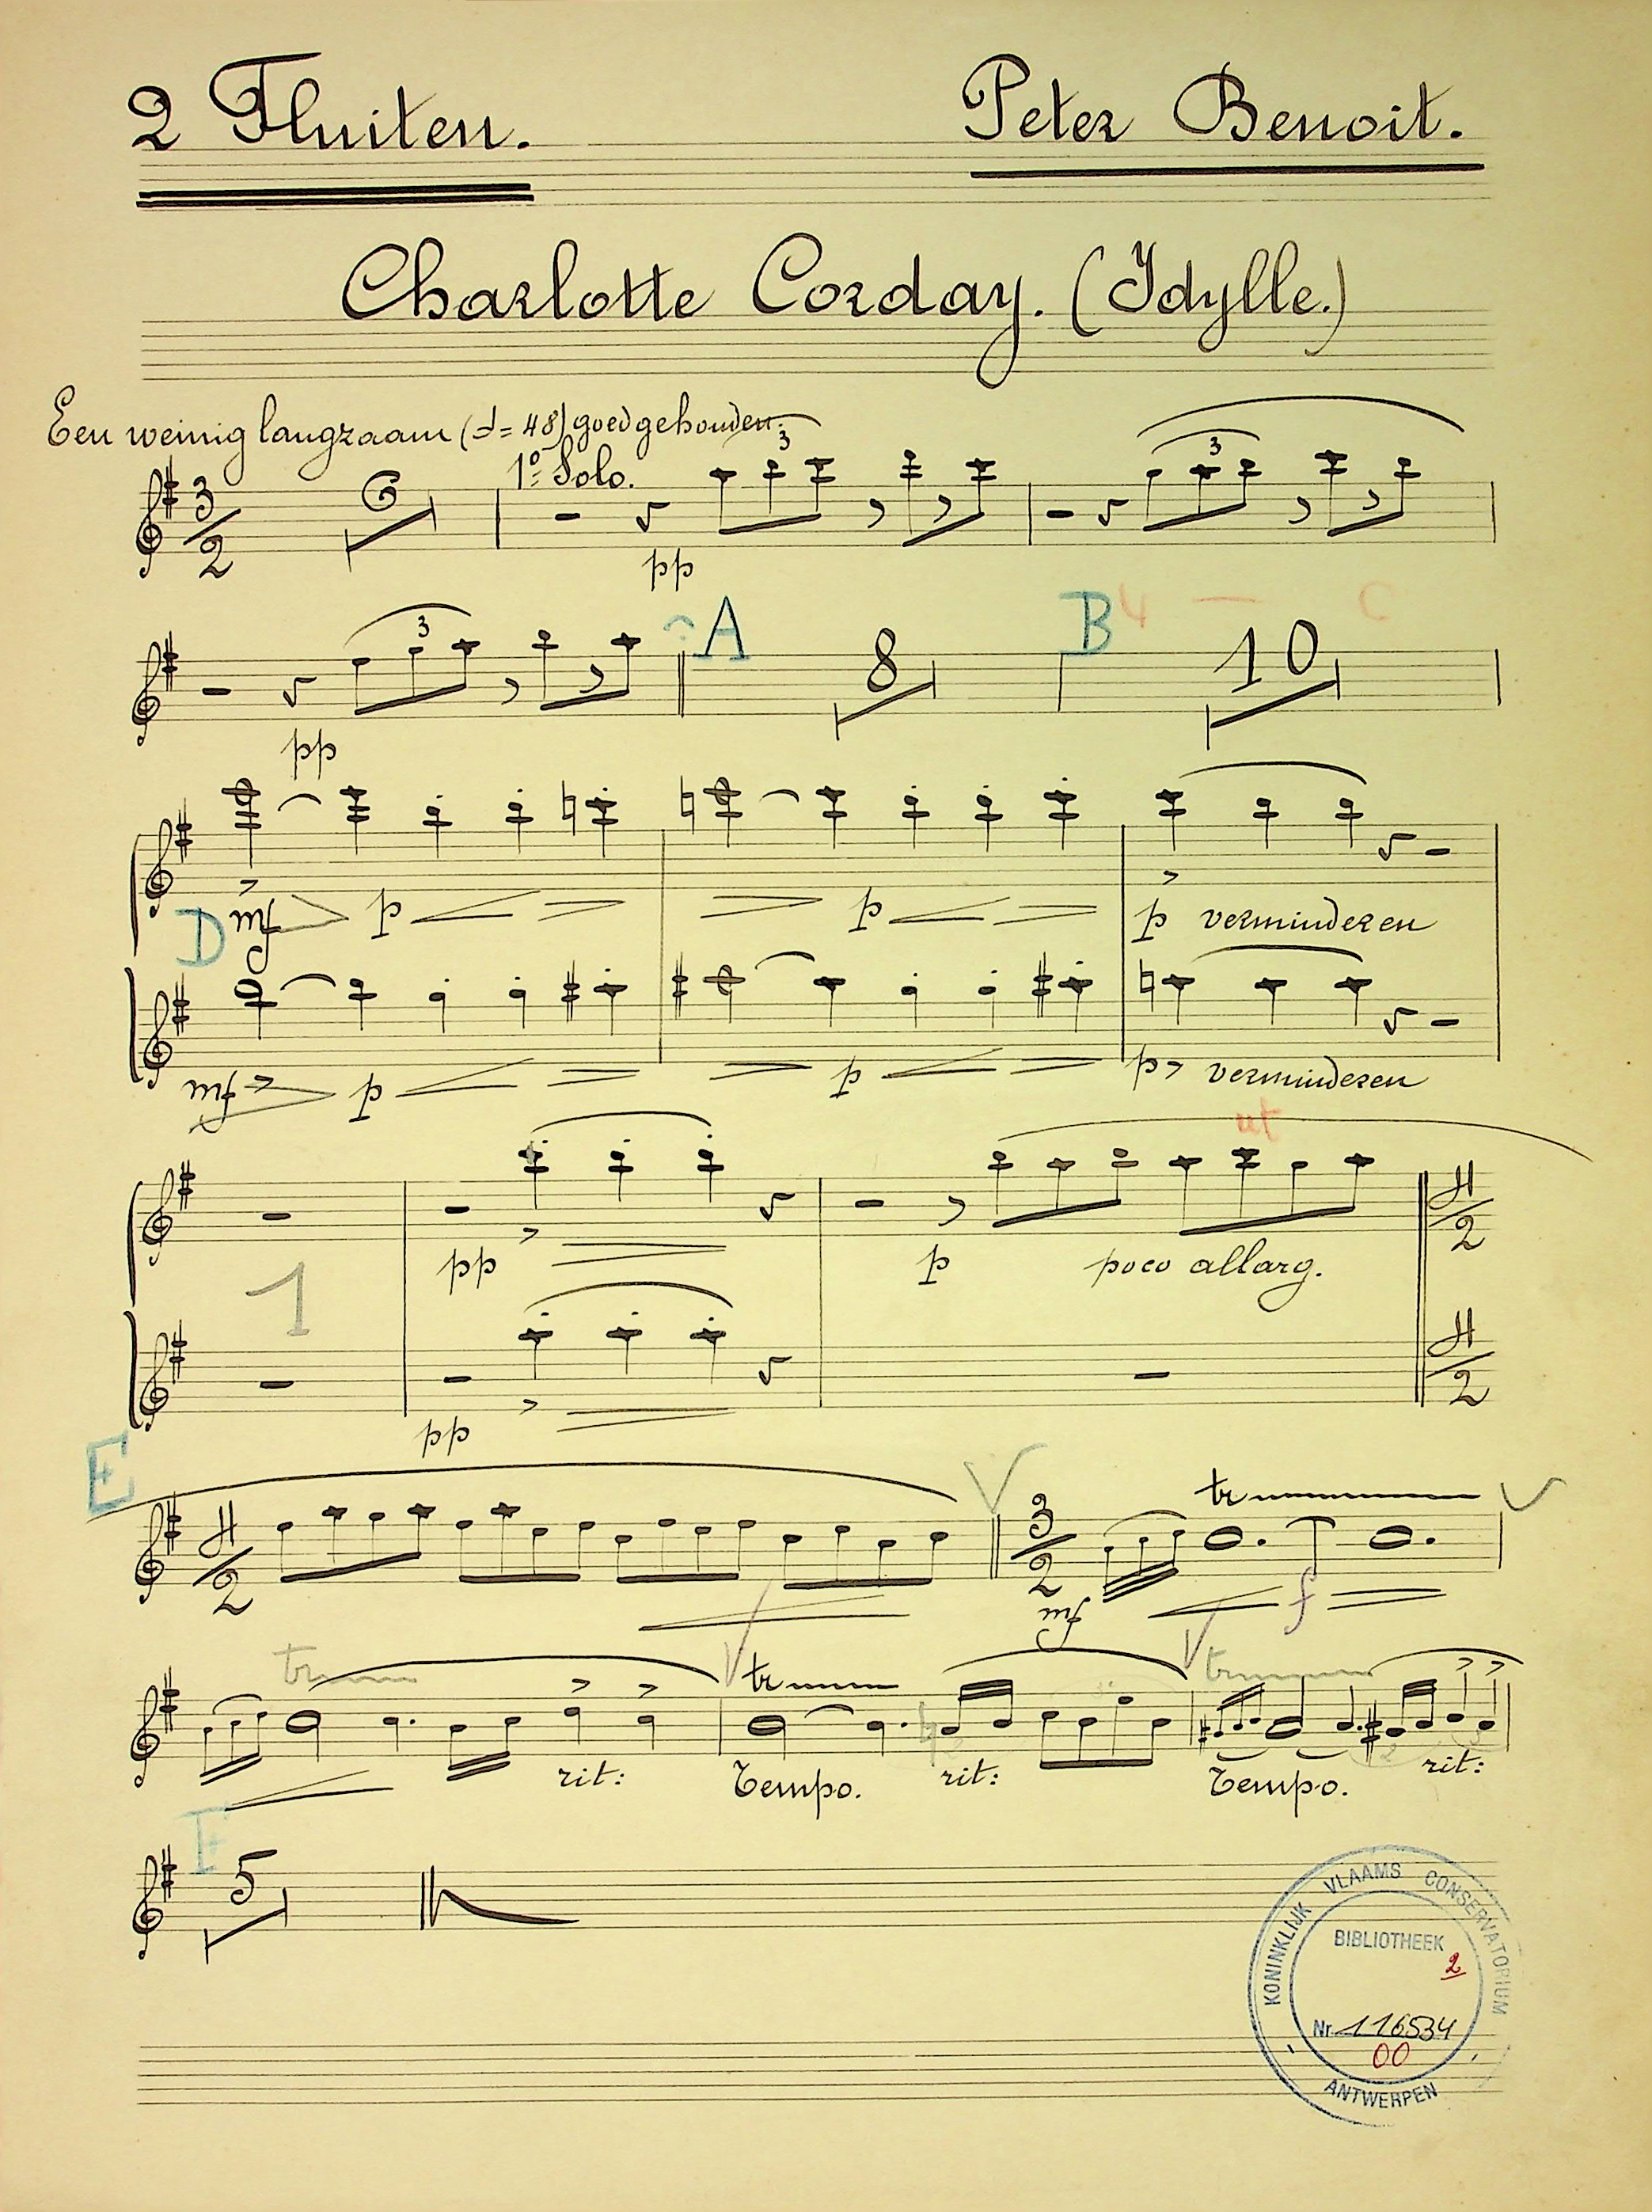 2 Fluiten. Peter Benoit.
Charlotte Corday. (Idylle.)
Een weinig langzaam (𝅗𝅥 = 48) goed gehouden.
3/2 6 1º Solo. 3 3
pp
3 A 8 B 4 — C 10
pp
mf p p p verminderen
D
mf p p p verminderen
ut
pp p poco allarg. 4/2
1
pp 4/2
E
4/2 3/2 tr
mf f
tr tr tr
rit: Tempo. rit: Tempo. rit:
F
5
KONINKLIJK VLAAMS CONSERVATORIUM
BIBLIOTHEEK
2
Nr 116534
00
ANTWERPEN